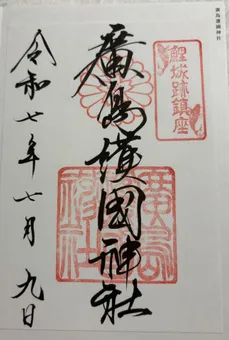 廣島護國神社
鯉城跡鎮座
廣島護國神社
令和七年七月九日